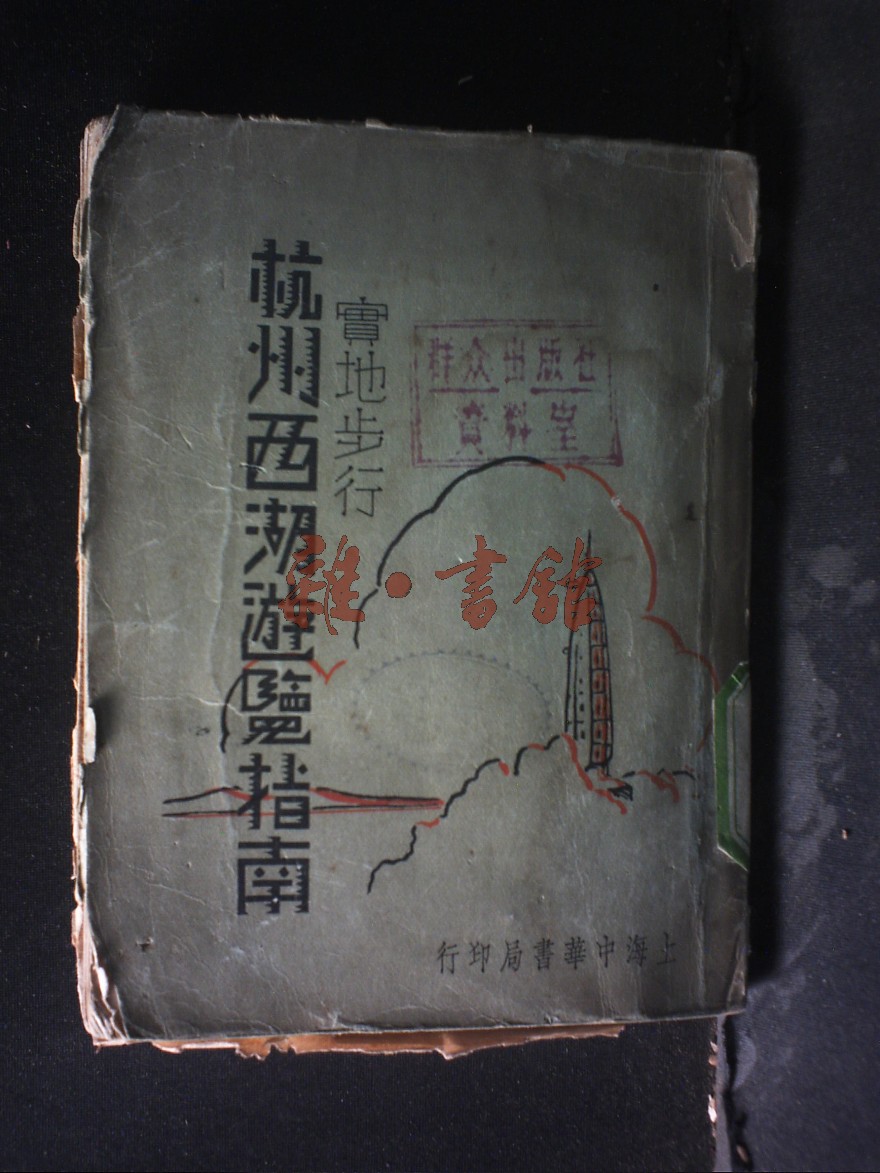 實地步行
杭州西湖遊覽指南
群众出版社
資料室
雜·書館
上海中華書局印行